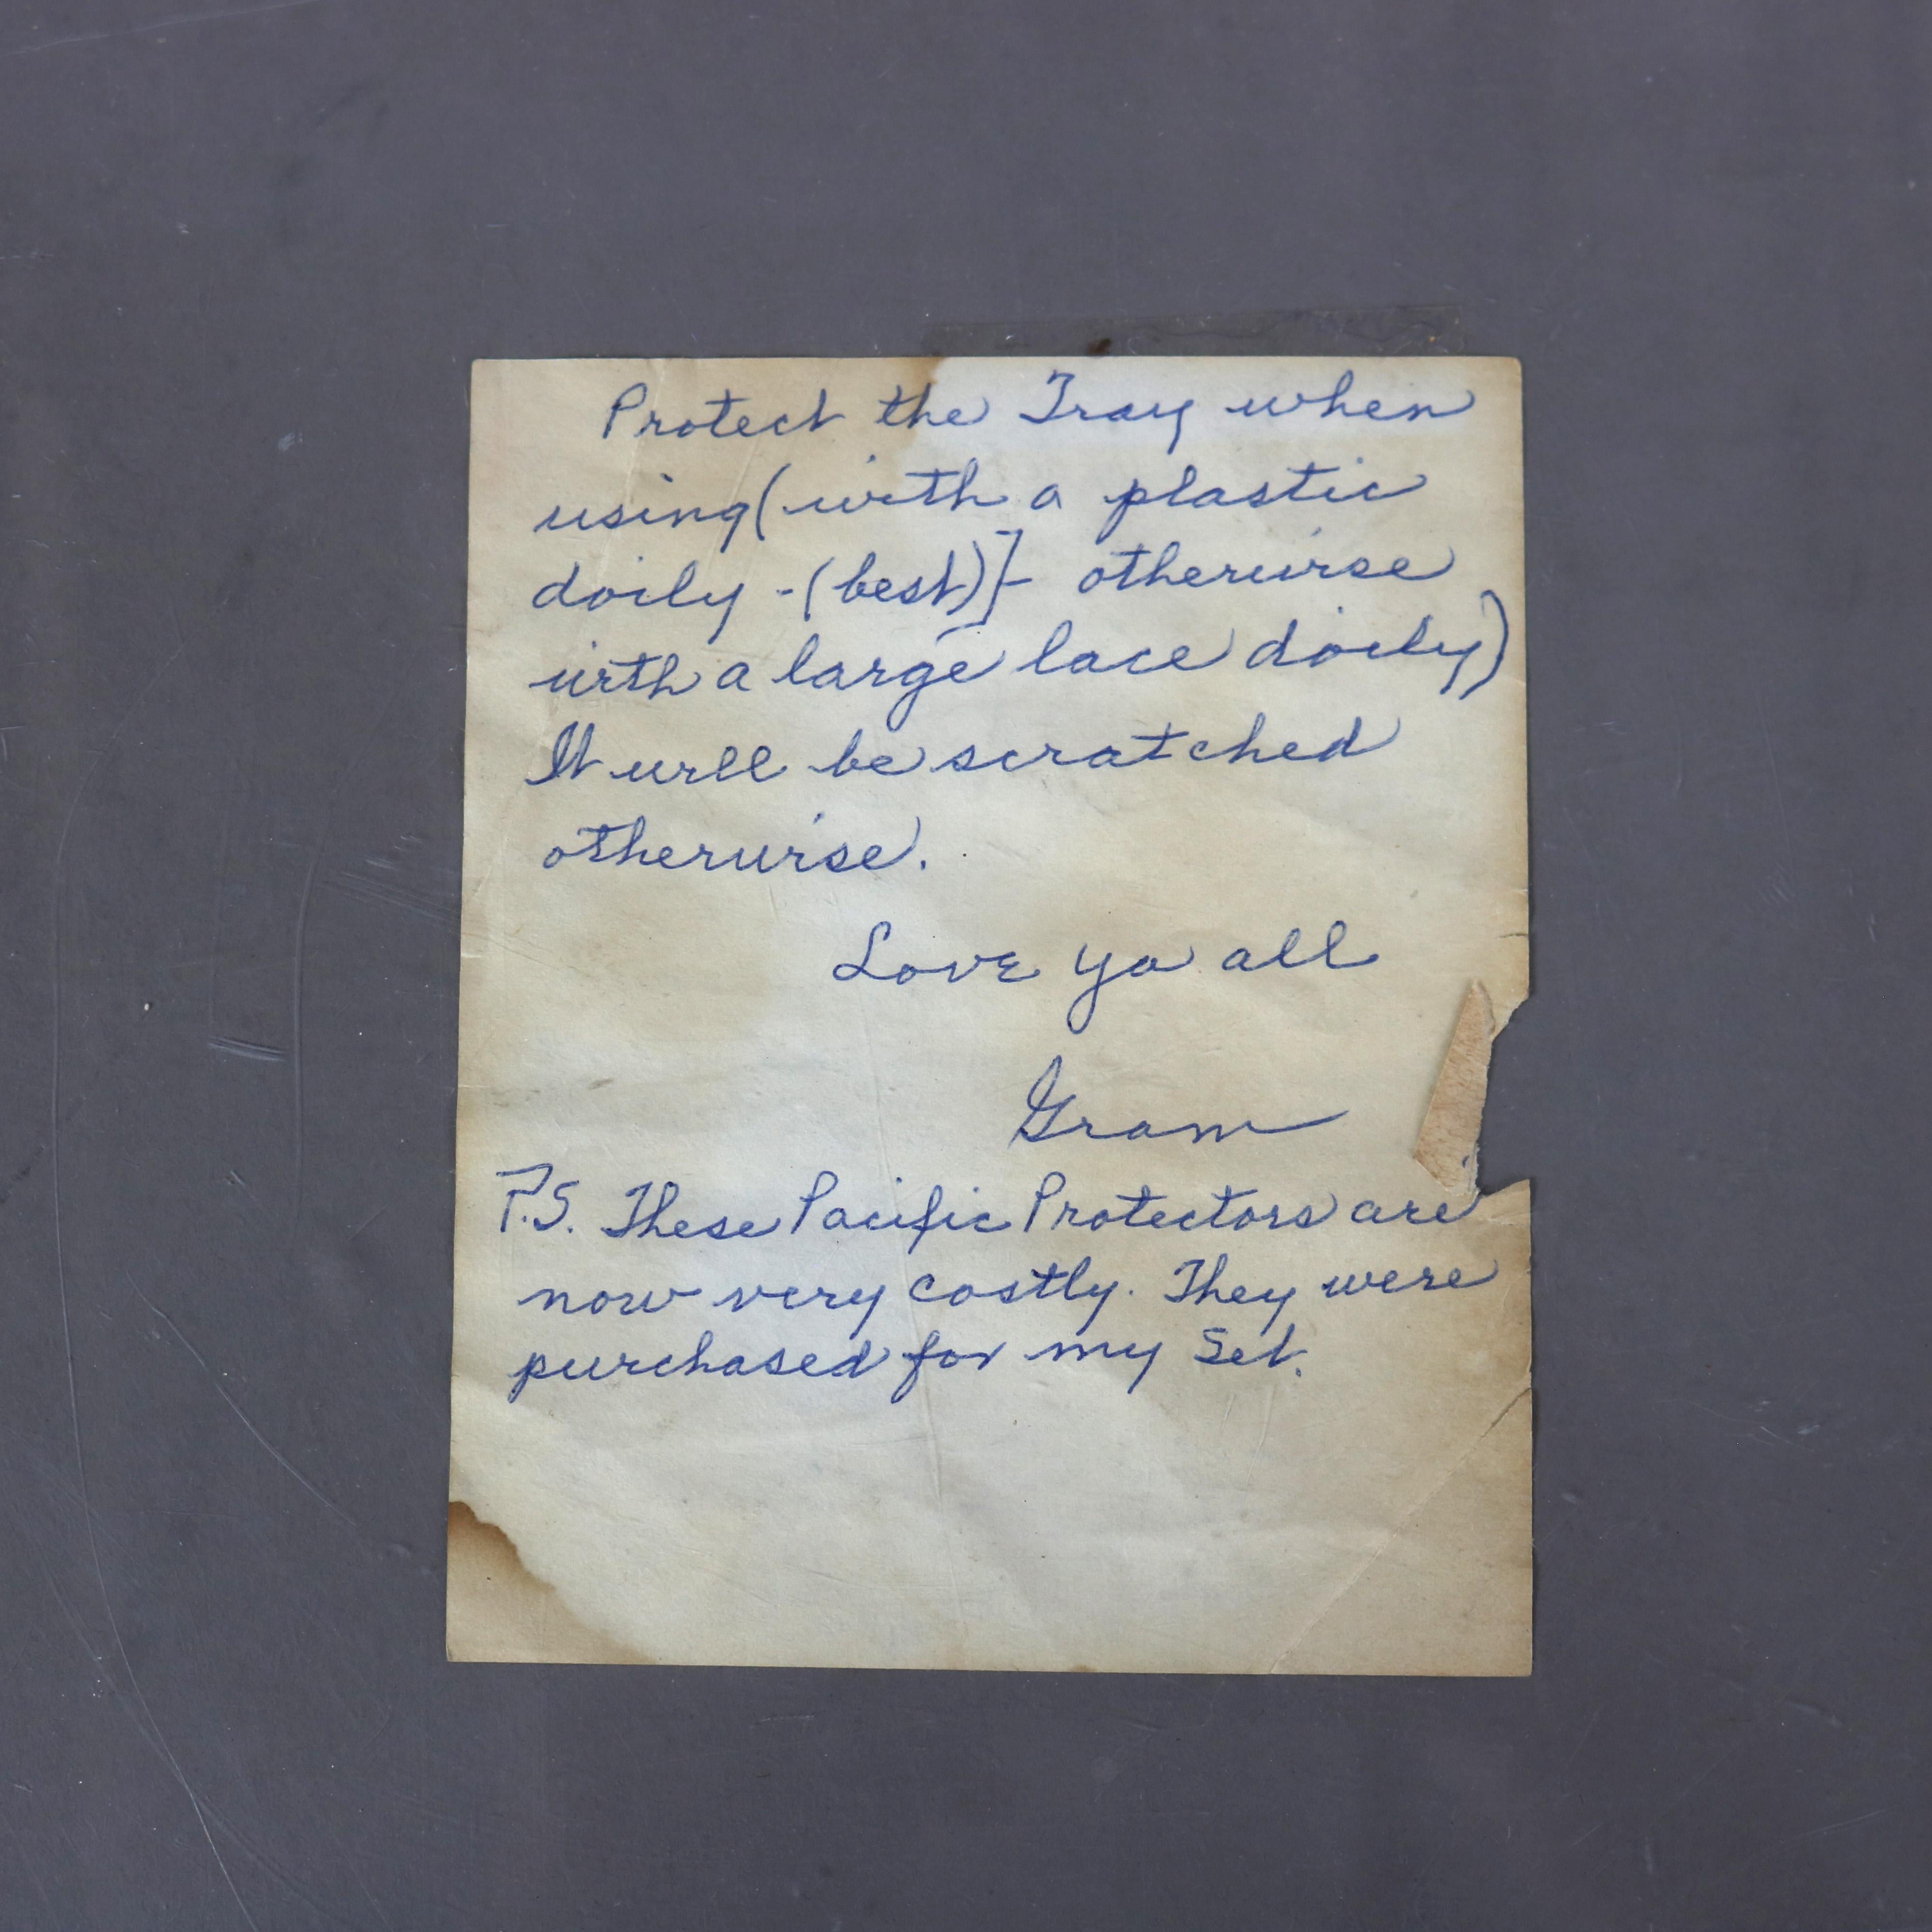 Protect the Tray when
using (with a plastic
doily - (best)] - otherwise
with a large lace doily)
It will be scratched
otherwise.
Love ya all
Gram
P.S. These Pacific Protectors are
now very costly. They were
purchased for my Set.